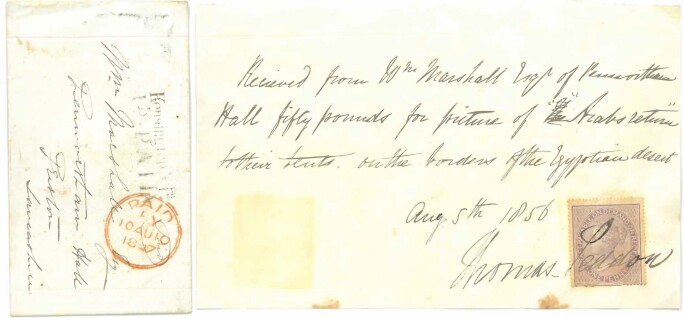 Wm Marshall Esq
Penwortham Hall
Preston
Lancashire
Kennington
PAID
10 AU 10
Recieved from Wm Marshall Esqr of Penwortham
Hall fifty pounds for picture of "The Arabs return"
to their tents. on the borders of the Egyptian desert
Aug 5th 1856
Thomas Seddon